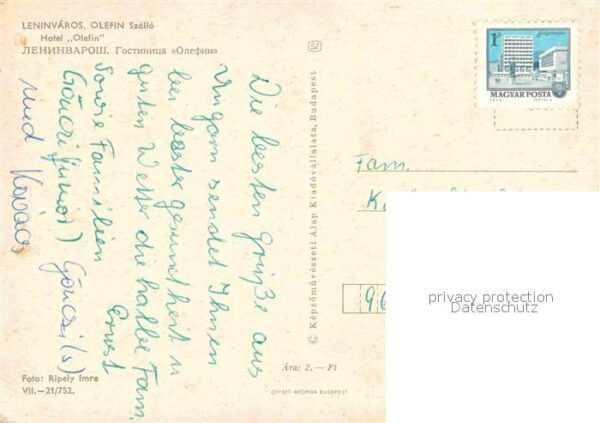 LENINVÁROS, OLEFIN Szálló
Hotel „Olefin"
ЛЕНИНВАРОШ. Гостиница «Олефин»
Die besten Grüße aus
Ungarn sendet Ihnen
bei
guten Wetter die halbe Fam.
Ernst
sowie Familien
Gönczi (junior) Gönczi (s)
und Kovács
© Képzőművészeti Alap Kiadóvállalata, Budapest
1Ft
MAGYAR POSTA
Fam.
96
privacy protection
Datenschutz
Ára: 2,— Ft
Foto: Ripely Imre
VII.—21/752.
OFFSET-NYOMDA BUDAPEST